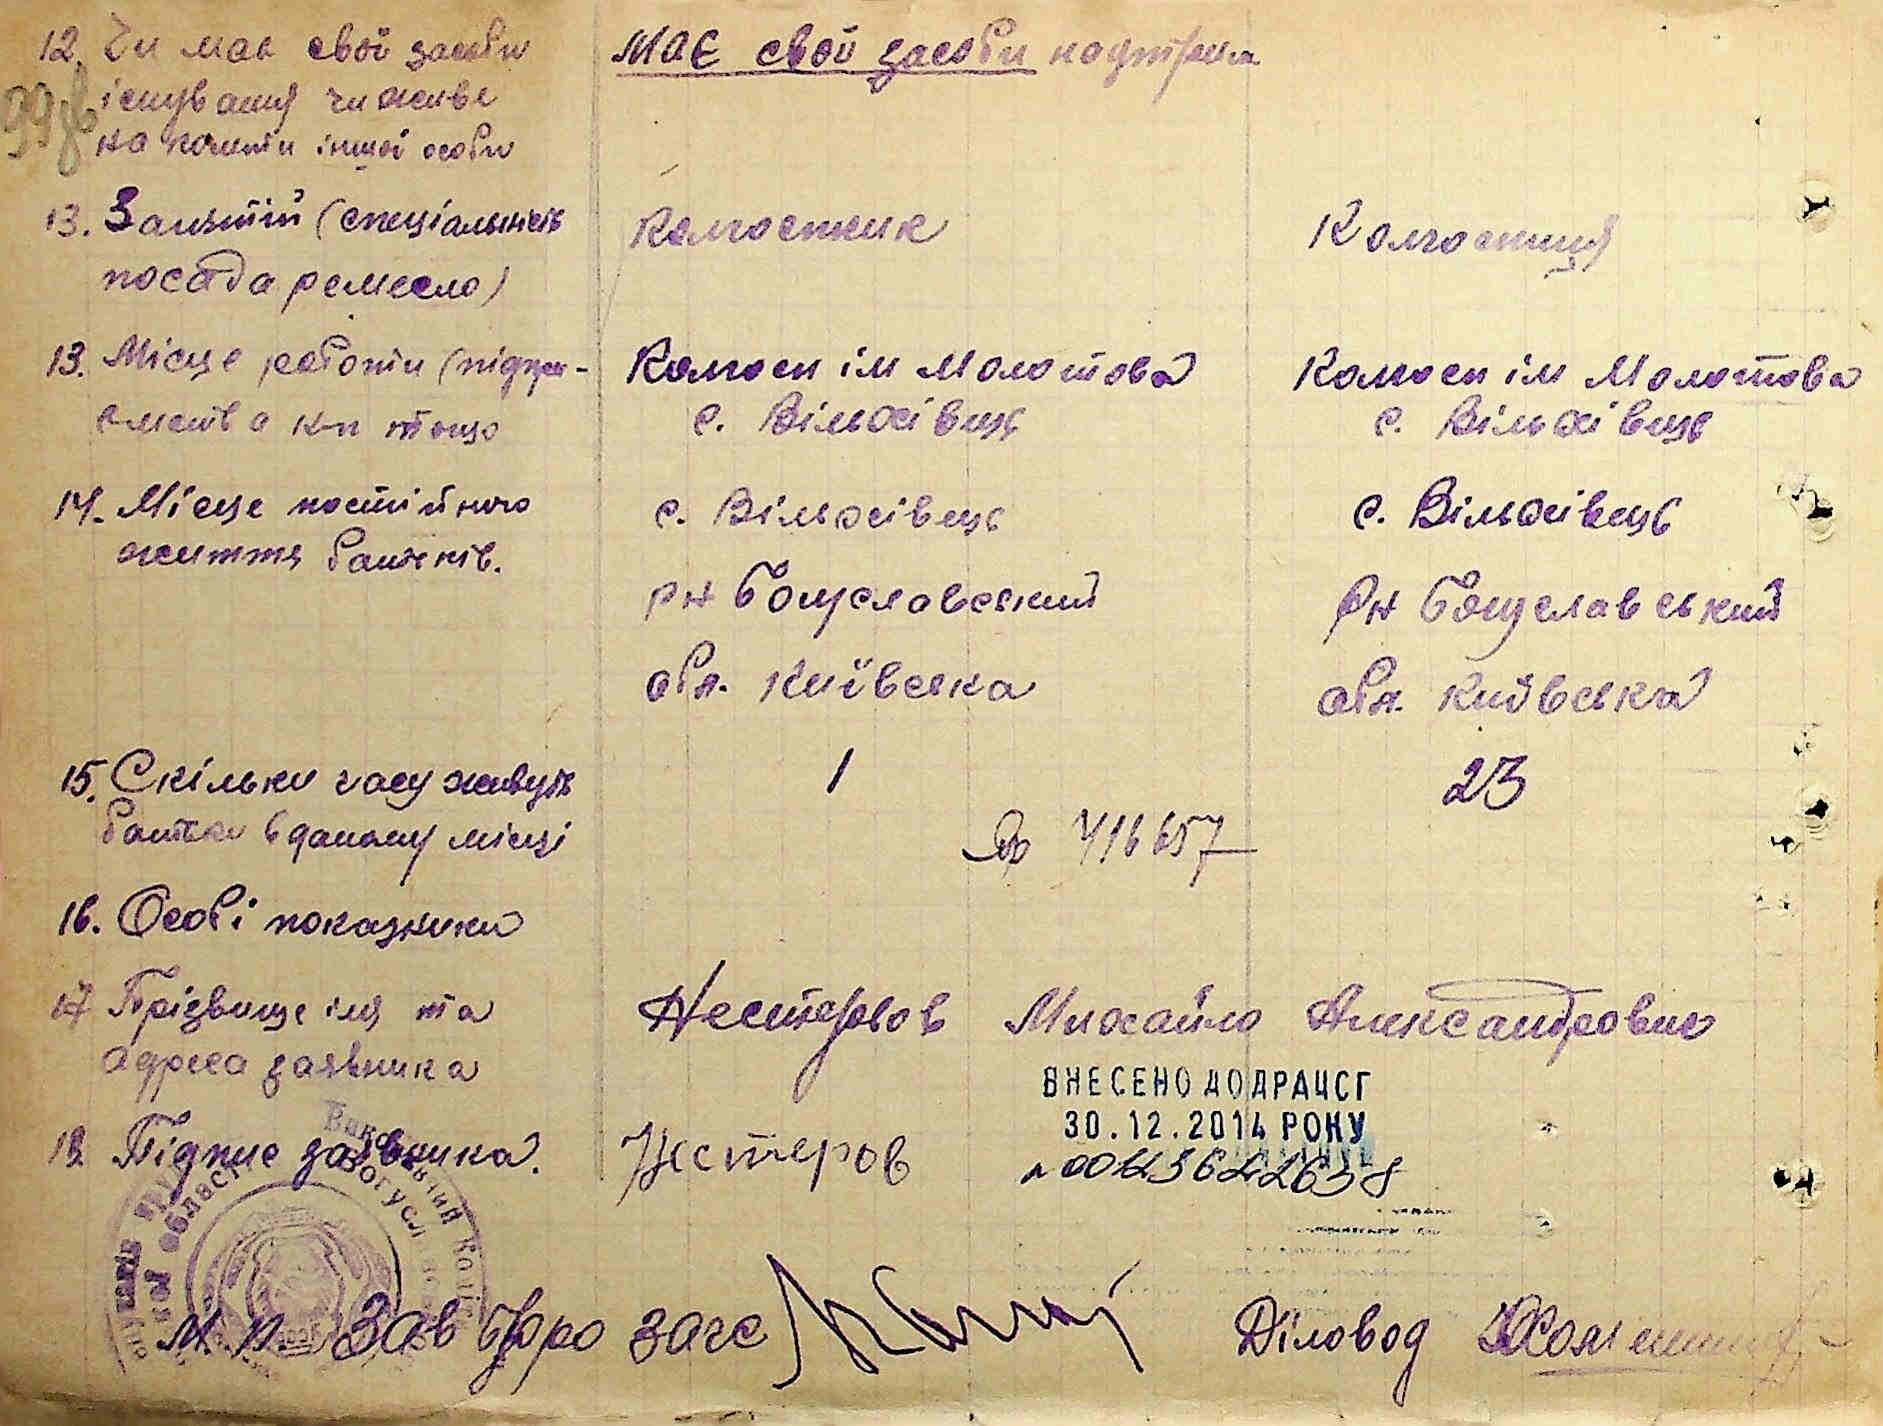 12. Чи має свої засоби має свої засоби
існування чи живе
на кошти іншої особи
99зв
13. Заняття (спеціальність Колгоспник Колгоспниця
посада ремесло)
13. Місце роботи (підпри- Колгосп ім Молотова Колгосп ім Молотова
ємства к-п тощо с. Вільхівець с. Вільхівець
14. Місце постійного с. Вільхівець с. Вільхівець
життя батьків. рн Богуславский рн Богуславський
обл. Київська обл. Київська
15. Скільки часу живуть 1 23
батьки в даному місці
716657
16. Особі показники
17 Прізвище імя та Нестеров Михайло Александрович
адреса заявника
ВНЕСЕНО ДО ДРАЦСГ
30.12.2014 РОКУ
18 Підпис заявника. Нестеров
м.п. Зав бюро загс Діловод